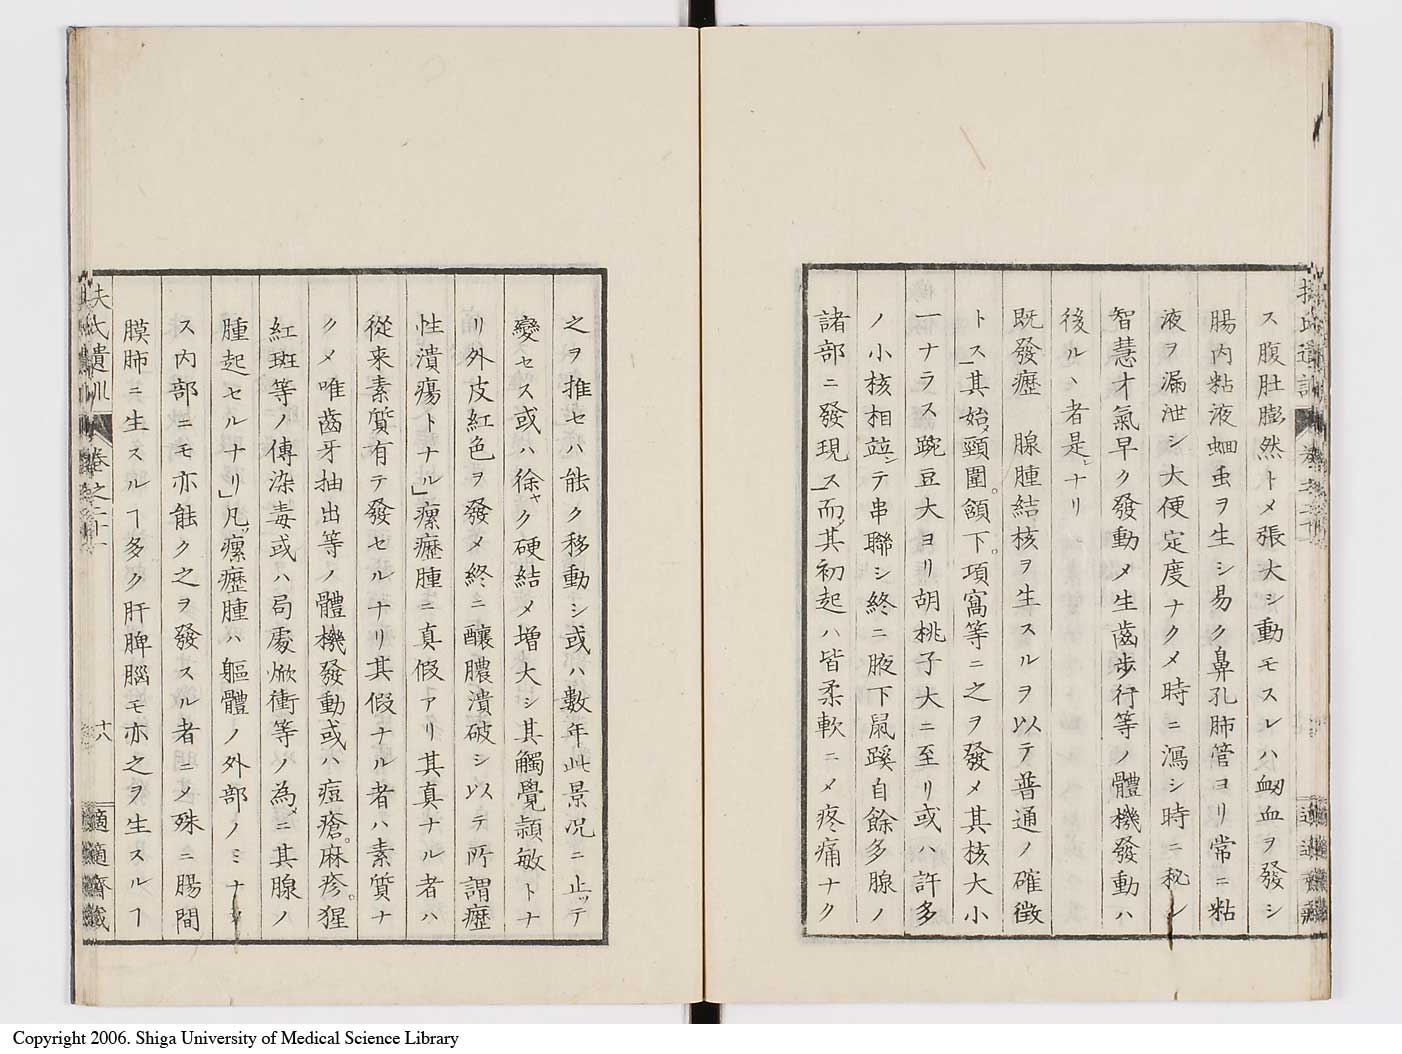 ス腹肚膨然トメ張大シ動モスレハ衂血ヲ發シ
腸内粘液蛔虫ヲ生シ易ク鼻孔肺管ヨリ常ニ粘
液ヲ漏泄シ大便定度ナクメ時ニ瀉シ時ニ秘シ
智慧才氣早ク發動メ生齒歩行等ノ體機發動ハ
後ルヽ者是ナリ
既發瘰 腺腫結核ヲ生スルヲ以テ普通ノ確徴
トス」其始頸圍。頷下。項窩等ニ之ヲ發メ其核大小
一ナラス豌豆大ヨリ胡桃子大ニ至リ或ハ許多
ノ小核相竝シテ串聯シ終ニ腋下鼠蹊自餘多腺ノ
諸部ニ發現ス」而其初起ハ皆柔軟ニメ疼痛ナク
之ヲ推セハ能ク移動シ或ハ數年此景況ニ止ッテ
變セス或ハ徐ヤク硬結メ増大シ其觸覺頴敏トナ
リ外皮紅色ヲ發メ終ニ釀膿潰破シ以テ所謂瘰
性潰瘍トナル」瘰癧腫ニ真假アリ其真ナル者ハ
從来素質有テ發セルナリ其假ナル者ハ素質ナ
クメ唯齒牙抽出等ノ體機發動或ハ痘瘡。麻疹。猩
紅斑等ノ傳染毒或ハ局處焮衝等ノ為メニ其腺ノ
腫起セルナリ」凡ッ瘰癧腫ハ軀體ノ外部ノミナラ
ス内部ニモ亦能ク之ヲ發スル者ニメ殊ニ腸間
膜肺ニ生スルヿ多ク肝脾腦モ亦之ヲ生スルヿ
扶氏遺訓 卷之二十 十八 適適齋藏
Copyright 2006. Shiga University of Medical Science Library